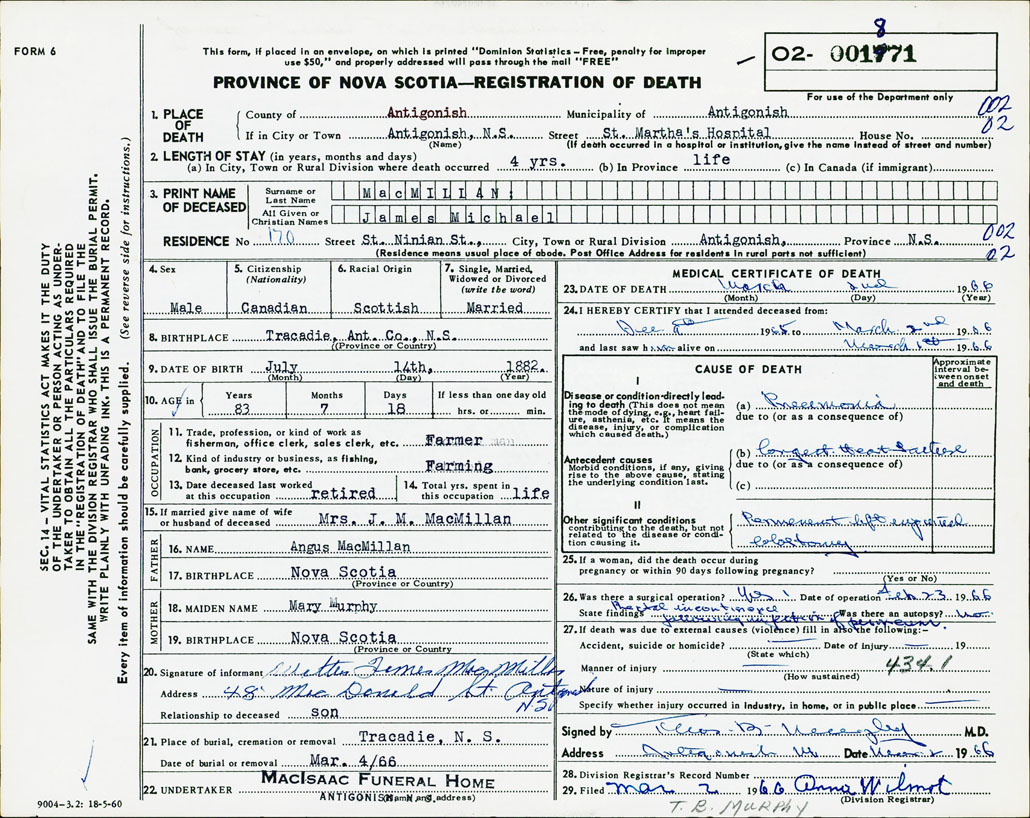 FORM 6
This form, if placed in an envelope, on which is printed "Dominion Statistics – Free, penalty for improper
use $50," and properly addressed will pass through the mail "FREE"
PROVINCE OF NOVA SCOTIA—REGISTRATION OF DEATH
8
02- 001771
For use of the Department only
1. PLACE OF DEATH
County of Antigonish Municipality of Antigonish 002
If in City or Town Antigonish, N.S. Street St. Martha's Hospital House No. 02
(Name) (If death occurred in a hospital or institution, give the name instead of street and number)
2. LENGTH OF STAY (in years, months and days)
(a) In City, Town or Rural Division where death occurred 4 yrs. (b) In Province life (c) In Canada (if immigrant)
3. PRINT NAME OF DECEASED
Surname or Last Name MacMILLAN;
All Given or Christian Names James Michael
RESIDENCE No 170 Street St. Ninian St., City, Town or Rural Division Antigonish, Province N.S. 002
(Residence means usual place of abode. Post Office Address for residents in rural parts not sufficient) 02
4. Sex Male
5. Citizenship (Nationality) Canadian
6. Racial Origin Scottish
7. Single, Married, Widowed or Divorced (write the word) Married
8. BIRTHPLACE Tracadie, Ant. Co., N.S.
(Province or Country)
9. DATE OF BIRTH July 14th, 1882.
(Month) (Day) (Year)
10. AGE in Years 83 Months 7 Days 18 If less than one day old hrs. or min.
OCCUPATION
11. Trade, profession, or kind of work as
fisherman, office clerk, sales clerk, etc. Farmer
12. Kind of industry or business, as fishing,
bank, grocery store, etc. Farming
13. Date deceased last worked
at this occupation retired
14. Total yrs. spent in
this occupation life
15. If married give name of wife
or husband of deceased Mrs. J. M. MacMillan
FATHER
16. NAME Angus MacMillan
17. BIRTHPLACE Nova Scotia
(Province or Country)
MOTHER
18. MAIDEN NAME Mary Murphy
19. BIRTHPLACE Nova Scotia
(Province or Country)
20. Signature of informant James MacMillan
Address 48 MacDonald St
N.S.
Relationship to deceased son
21. Place of burial, cremation or removal Tracadie, N. S.
Date of burial or removal Mar. 4/66
22. UNDERTAKER MacIsaac Funeral Home
ANTIGONISH, N.S.
(Name and address)
MEDICAL CERTIFICATE OF DEATH
23. DATE OF DEATH March 2nd 1966
(Month) (Day) (Year)
24. I HEREBY CERTIFY that I attended deceased from:
Dec 8th 1965 to March 2nd 1966
and last saw him alive on March 1st 1966
CAUSE OF DEATH
Approximate interval between onset and death
I
Disease or condition directly leading to death (This does not mean the mode of dying, e.g., heart failure, asthenia, etc. It means the disease, injury, or complication which caused death.)
(a) Pneumonia
due to (or as a consequence of)
Antecedent causes
Morbid conditions, if any, giving rise to the above cause, stating the underlying condition last.
(b) Congest. Heart Failure
due to (or as a consequence of)
(c)
II
Other significant conditions contributing to the death, but not related to the disease or condition causing it.
Permanent left inguinal
colostomy
25. If a woman, did the death occur during
pregnancy or within 90 days following pregnancy?
(Yes or No)
26. Was there a surgical operation? Yes! Date of operation Feb 23 1966
State findings Rectal incontinence Was there an autopsy? No.
27. If death was due to external causes (violence) fill in also the following:–
Accident, suicide or homicide? Date of injury 19
(State which)
Manner of injury 434.1
(How sustained)
Nature of injury
Specify whether injury occurred in Industry, in home, or in public place
Signed by M.D.
Address Antigonish Date March 2 1966
28. Division Registrar's Record Number
29. Filed Mar 2 1966 Anna Wilmot
(Division Registrar)
T. B. MURPHY
SEC. 14 – VITAL STATISTICS ACT MAKES IT THE DUTY
OF THE UNDERTAKER OR PERSON ACTING AS UNDER-
TAKER TO OBTAIN ALL THE PARTICULARS REQUIRED
IN THE "REGISTRATION OF DEATH" AND TO FILE THE
SAME WITH THE DIVISION REGISTRAR WHO SHALL ISSUE THE BURIAL PERMIT.
WRITE PLAINLY WITH UNFADING INK. THIS IS A PERMANENT RECORD.
Every item of information should be carefully supplied. (See reverse side for instructions.)
9004–3.2: 18-5-60